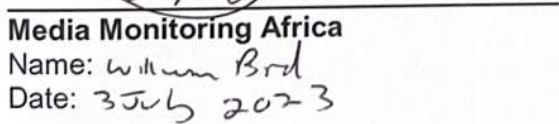 Media Monitoring Africa
Name: William Bird
Date: 3 July 2023